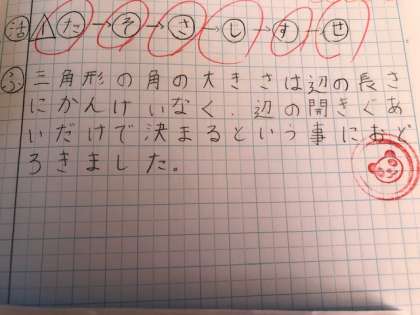 活 た→そ→さ→し→す→せ
ふ 三角形の角の大きさは辺の長さ
にかんけいなく、辺の開きぐあ
いだけで決まるという事におど
ろきました。